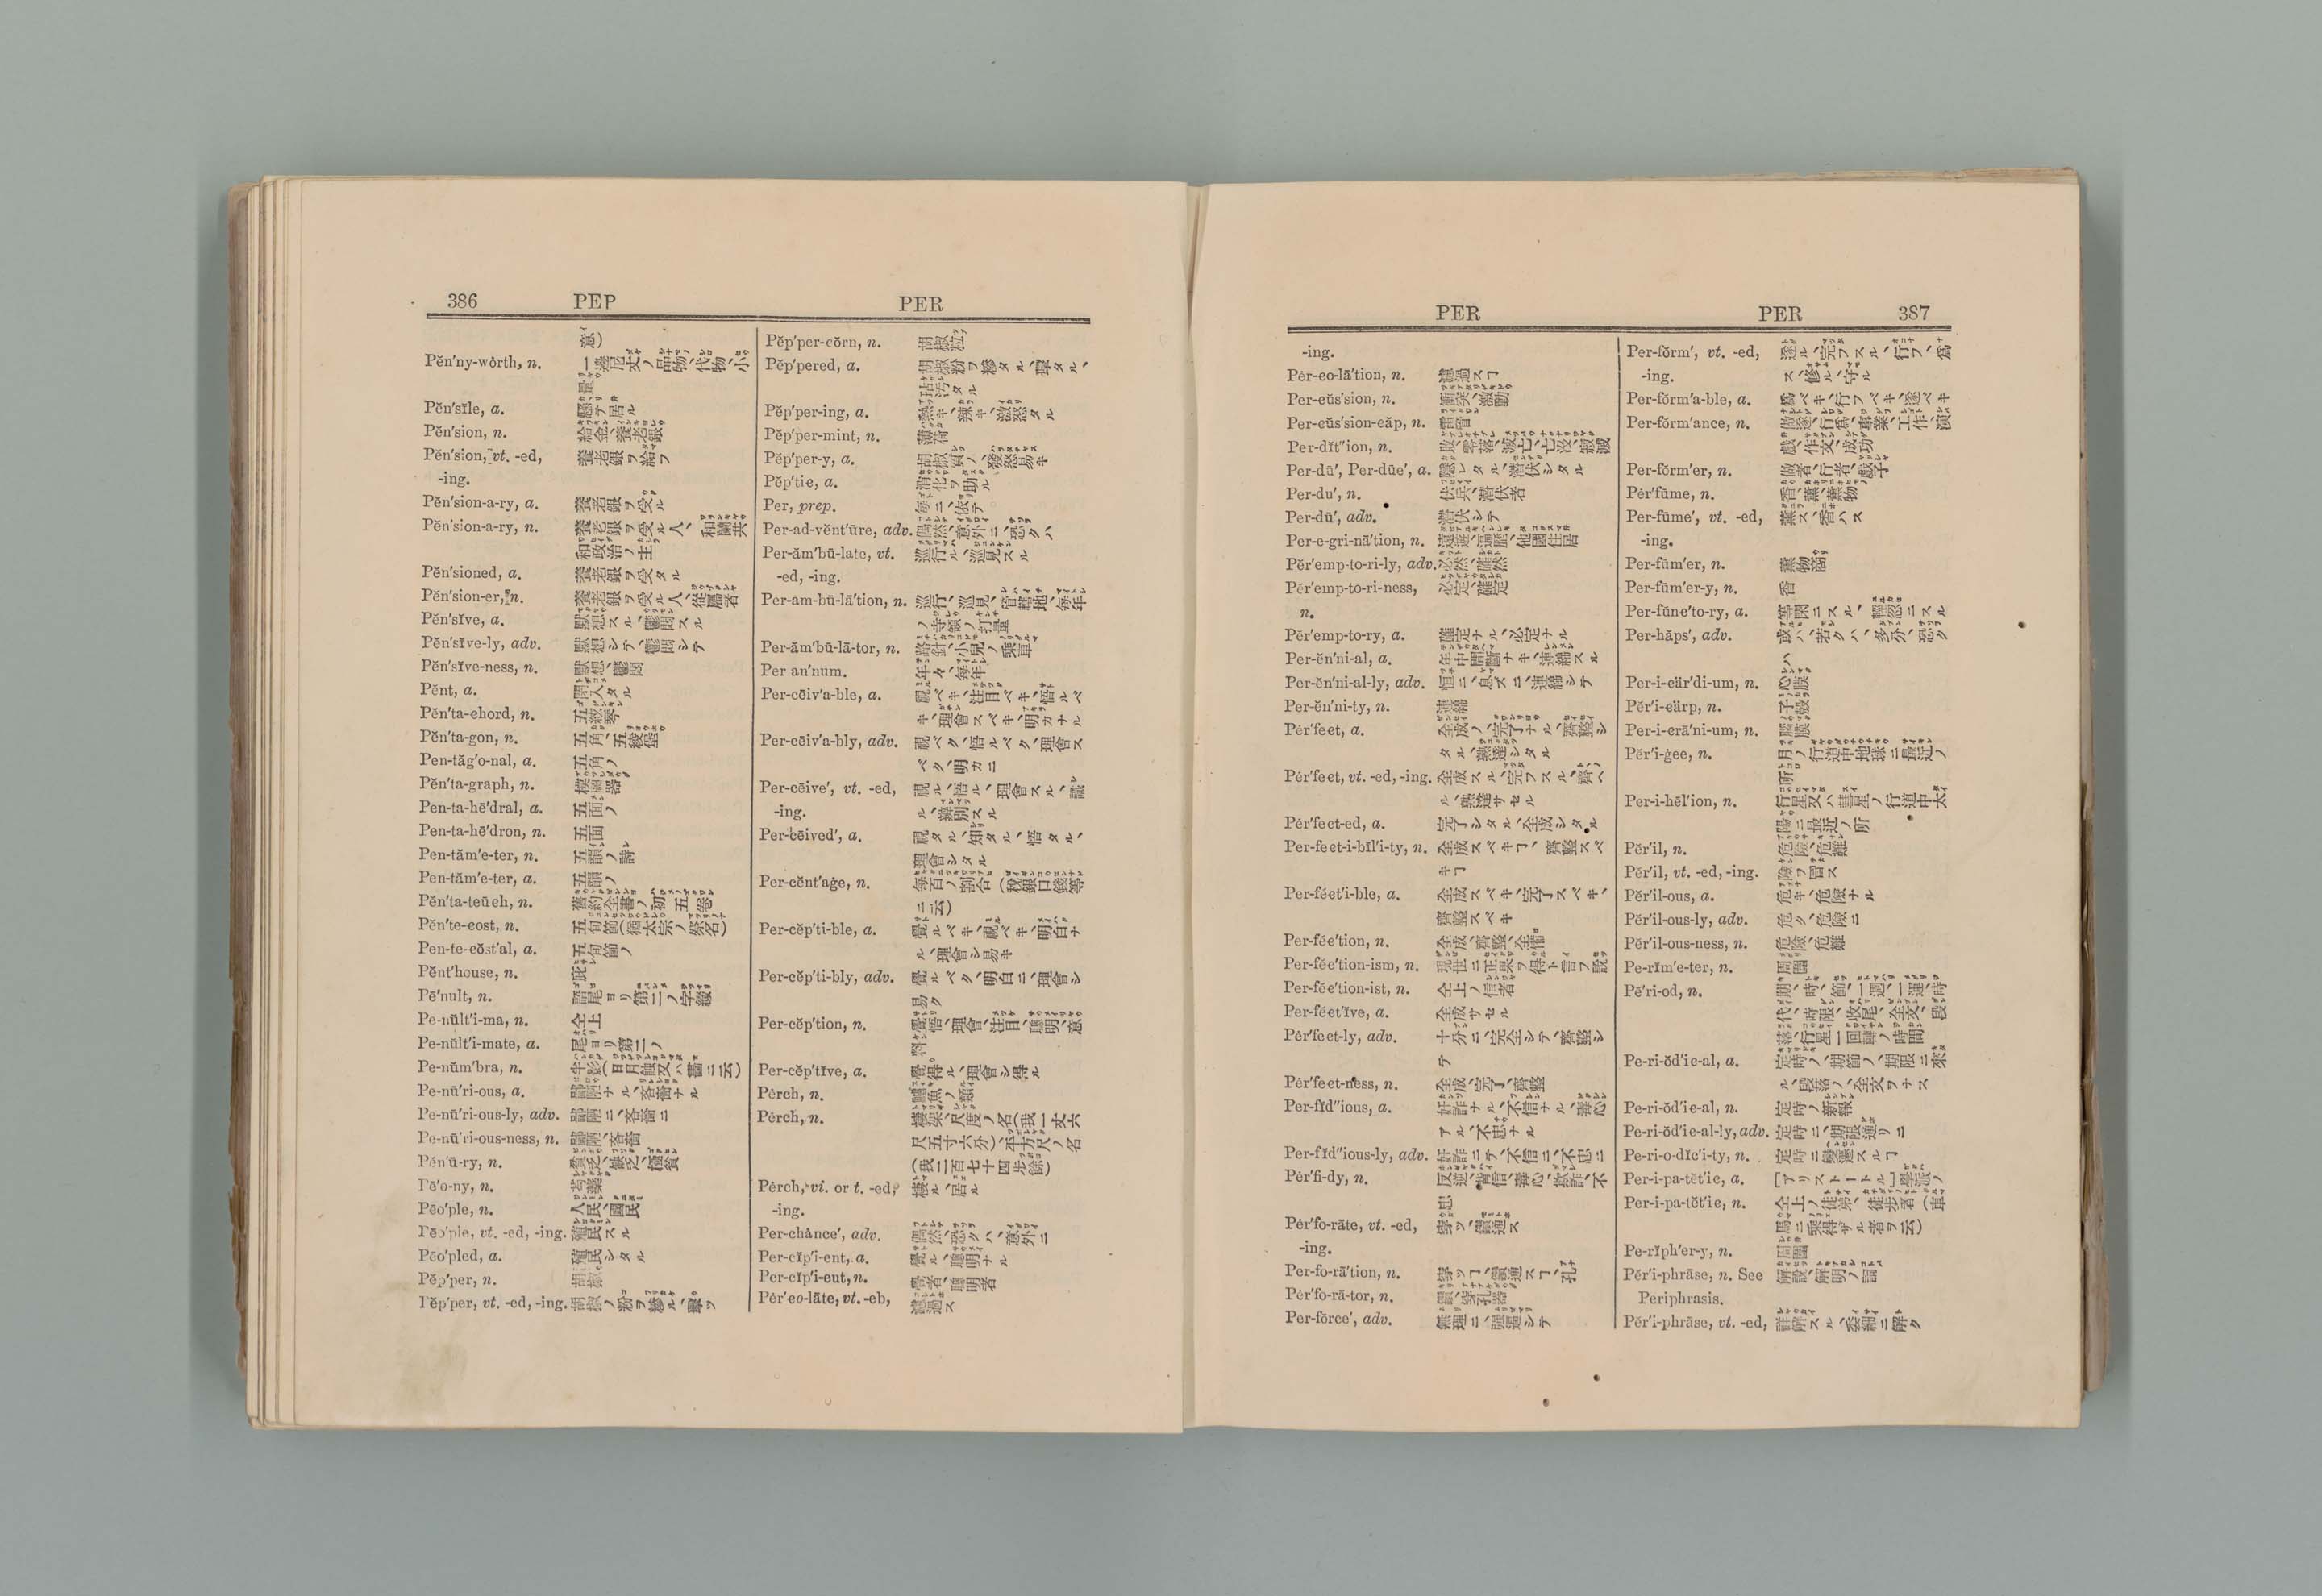 386 PEP PER
意)
Pĕn'ny-wôrth, n. 一邊尼丈ノ品物、代物、小
量
Pĕn'sĭle, a. 懸テ居ル
Pĕn'sion, n. 給金、養老銀
Pĕn'sion, vt. -ed, 養老銀ヲ給フ
-ing.
Pĕn'sion-a-ry, a. 養老銀ヲ受ル
Pĕn'sion-a-ry, n. 養老銀ヲ受ル人、和蘭共
和政治ノ主
Pĕn'sioned, a. 養老銀ヲ受タル
Pĕn'sion-er, n. 養老銀ヲ受ル人、從屬者
Pĕn'sĭve, a. 默想スル、鬱悶スル
Pĕn'sĭve-ly, adv. 默想シテ、鬱悶シテ
Pĕn'sĭve-ness, n. 默想、鬱悶
Pĕnt, a. 閉入タル
Pĕn'ta-ehord, n. 五絃琴
Pĕn'ta-gon, n. 五角、五稜堡
Pen-tăg'o-nal, a. 五角ノ
Pĕn'ta-graph, n. 模圖器
Pen-ta-hē'dral, a. 五面ノ
Pen-ta-hē'dron, n. 五面
Pen-tăm'e-ter, n. 五韻ノ詩
Pen-tăm'e-ter, a. 五韻ノ
Pĕn'ta-teūeh, n. 舊約全書ノ初五卷
Pĕn'te-eost, n. 五旬節(猶太宗ノ祭名)
Pen-te-eŏst'al, a. 五旬節ノ
Pĕnt'house, n. 庇
Pē'nult, n. 語尾ヨリ第二ノ字綴
Pe-nŭlt'i-ma, n. 仝上
Pe-nŭlt'i-mate, a. 尾ヨリ第二ノ
Pe-nŭm'bra, n. 半影(日月蝕又ハ畫ニ云)
Pe-nū'ri-ous, a. 鄙陋ナル、吝嗇ナル
Pe-nū'ri-ous-ly, adv. 鄙陋ニ、吝嗇ニ
Pe-nū'ri-ous-ness, n. 鄙陋、吝嗇
Pĕn'ū-ry, n. 貧乏、缺乏、極貧
Pē'o-ny, n. 芍藥
Pēo'ple, n. 人民、國民
Pēo'ple, vt. -ed, -ing. 殖民スル
Pēo'pled, a. 殖民シタル
Pĕp'per, n. 胡椒
Pĕp'per, vt. -ed, -ing. 胡椒ノ粉ヲ糝ル、擊ツ
Pĕp'per-eŏrn, n. 胡椒粒
Pĕp'pered, a. 胡椒粉ヲ糝タル、擊タル、
玷汚タル
Pĕp'per-ing, a. 熱キ、辣キ、激怒タル
Pĕp'per-mint, n. 薄荷
Pĕp'per-y, a. 胡椒質ノ、發怒易キ
Pĕp'tie, a. 消化ヲ助ル
Per, prep. 每ニ、依テ
Per-ad-vĕnt'ūre, adv. 偶然、意外ニ、恐クハ
Per-ăm'bū-late, vt. 巡行ル、巡見スル
-ed, -ing.
Per-am-bū-lā'tion, n. 巡行、巡見、管轄地、每年
ノ寺領ノ打量
Per-ăm'bū-lā-tor, n. 路針、小兒ノ乘車
Per an'num. 年々、每年
Per-cēiv'a-ble, a. 視ベキ、注目ベキ、悟ルベ
キ、理會スベキ、明カナル
Per-cēiv'a-bly, adv. 視ベク、悟ルベク、理會ス
ベク、明カニ
Per-cēive', vt. -ed, 視ル、悟ル、理會スル、識
-ing. ル、辨別スル
Per-cēived', a. 視タル、知タル、悟タル、
理會シタル
Per-cĕnt'aġe, n. 每百ノ割合(稅銀口錢等
ニ云)
Per-cĕp'ti-ble, a. 覺ルベキ、視ベキ、明白ナ
ル、理會シ易キ
Per-cĕp'ti-bly, adv. 覺ルベク、明白ニ、理會シ
易ク
Per-cĕp'tion, n. 覺悟、理會、注目、聰明、意
料
Per-cĕp'tĭve, a. 覺得ル、理會シ得ル
Pẽrch, n. 鱸魚ノ類
Pẽrch, n. 棲架、尺度ノ名(我一丈六
尺五寸六分)、平方尺ノ名
(我二百七十四步餘)
Pẽrch, vi. or t. -ed, 棲ル、居ル
-ing.
Per-chănce', adv. 偶然、恐クハ、意外ニ
Per-cĭp'i-ent, a. 覺ル、聰明ナル
Per-cĭp'i-eut, n. 覺者、聰明者
Pẽr'eo-lāte, vt. -eb, 濾過ス
PER PER 387
-ing.
Pẽr-eo-lā'tion, n. 濾過スヿ
Per-eŭs'sion, n. 衝突、激動
Per-eŭs'sion-eăp, n. 雷管
Per-dĭt"ion, n. 敗、零落、滅亡、亡沒、寂滅
Per-dū', Per-dūe', a. 隱レタル、潛伏シタル
Per-du', n. 伏兵、潛伏者
Per-dū', adv. 潛伏シテ
Per-e-gri-nā'tion, n. 遠遊、遍歷、他國住居
Pĕr'emp-to-ri-ly, adv. 必然、確然
Pĕr'emp-to-ri-ness, 必定、確定
n.
Pĕr'emp-to-ry, a. 確定ナル、必定ナル
Per-ĕn'ni-al, a. 年中間斷ナキ、連綿スル
Per-ĕn'ni-al-ly, adv. 恒ニ、息ズニ、連綿シテ
Per-ĕn'ni-ty, n. 連綿
Pẽr'feet, a. 全成ノ、完了ナル、齊整シ
タル、熟達シタル
Pẽr'feet, vt. -ed, -ing. 全成スル、完フスル、齊ヘ
ル、熟達サセル
Pẽr'feet-ed, a. 完了シタル、全成シタル
Per-feet-i-bĭl'i-ty, n. 全成スベキヿ、齊整スベ
キヿ
Per-féet'i-ble, a. 全成スベキ、完了スベキ、
齊整スベキ
Per-fée'tion, n. 全成、齊整、全備
Per-fée'tion-ism, n. 現世ニ正果ヲ得ト言フ說
Per-fée'tion-ist, n. 仝上ノ信者
Per-féet'ĭve, a. 全成サセル
Pẽr'feet-ly, adv. 十分ニ、完全シテ、齊整シ
テ
Pẽr'feet-ness, n. 全成、完了、齊整
Per-fĭd"ious, a. 奸詐ナル、不信ナル、毒心
アル、不忠ナル
Per-fĭd"ious-ly, adv. 奸詐ニテ、不信ニ、不忠ニ
Pẽr'fi-dy, n. 反逆、背信、毒心、欺詐、不
忠
Pẽr'fo-rāte, vt. -ed, 穿ツ、鑽通ス
-ing.
Per-fo-rā'tion, n. 穿ツヿ、鑽通スヿ、孔
Pẽr'fo-rā-tor, n. 鑽、穿孔器
Per-fōrce', adv. 無理ニ、强逼シテ
Per-fôrm', vt. -ed, 遂ル、完フスル、行フ、爲
-ing. ス、修ル、守ル
Per-fôrm'a-ble, a. 爲ベキ、行フベキ、遂ベキ
Per-fôrm'ance, n. 做遂、行爲、專業、工作、演
戲、作文、成功
Per-fôrm'er, n. 做者、行者、戲子
Pẽr'fūme, n. 香、薰、薰物
Per-fūme', vt. -ed, 薰ス、香ハス
-ing.
Per-fūm'er, n. 薰物商
Per-fūm'er-y, n. 香
Per-fŭne'to-ry, a. 等閑ニスル、輕忽ニスル
Per-hăps', adv. 或ハ、若クハ、多分、恐ク
ハ
Per-i-eär'di-um, n. 心膜
Pĕr'i-eärp, n. 子殼
Per-i-erā'ni-um, n. 腦膜
Pĕr'i-ġee, n. 月ノ行道中地球ニ最近ノ
所
Per-i-hēl'ion, n. 行星又ハ彗星ノ行道中太
陽ニ最近ノ所
Pĕr'il, n. 危險、危難
Pĕr'il, vt. -ed, -ing. 險ヲ冒ス
Pĕr'il-ous, a. 危キ、危險ナル
Pĕr'il-ous-ly, adv. 危ク、危險ニ
Pĕr'il-ous-ness, n. 危險、危難
Pe-rĭm'e-ter, n. 周圍
Pē'ri-od, n. 期、時、節、一週、一運、時
代、時限、收尾、全文、段
落、行星一回轉ノ時間
Pe-ri-ŏd'ie-al, a. 定時ノ、期節ノ、期限ニ來
ル、段落ノ、全文ヲナス
Pe-ri-ŏd'ie-al, n. 定時ノ新報
Pe-ri-ŏd'ie-al-ly, adv. 定時ニ、期限通リニ
Pe-ri-o-dĭc'i-ty, n. 定時ニ變遷スルヿ
Per-i-pa-tĕt'ie, a. [アリストートル]學派ノ
Per-i-pa-tĕt'ie, n. 仝上ノ徒弟、徒步者(車
馬ニ乘得ザル者ヲ云)
Pe-rĭph'er-y, n. 周圍
Pĕr'i-phrāse, n. See 解說、解明ノ詞
Periphrasis.
Pĕr'i-phrāse, vt. -ed, 詳解スル、委細ニ解ク